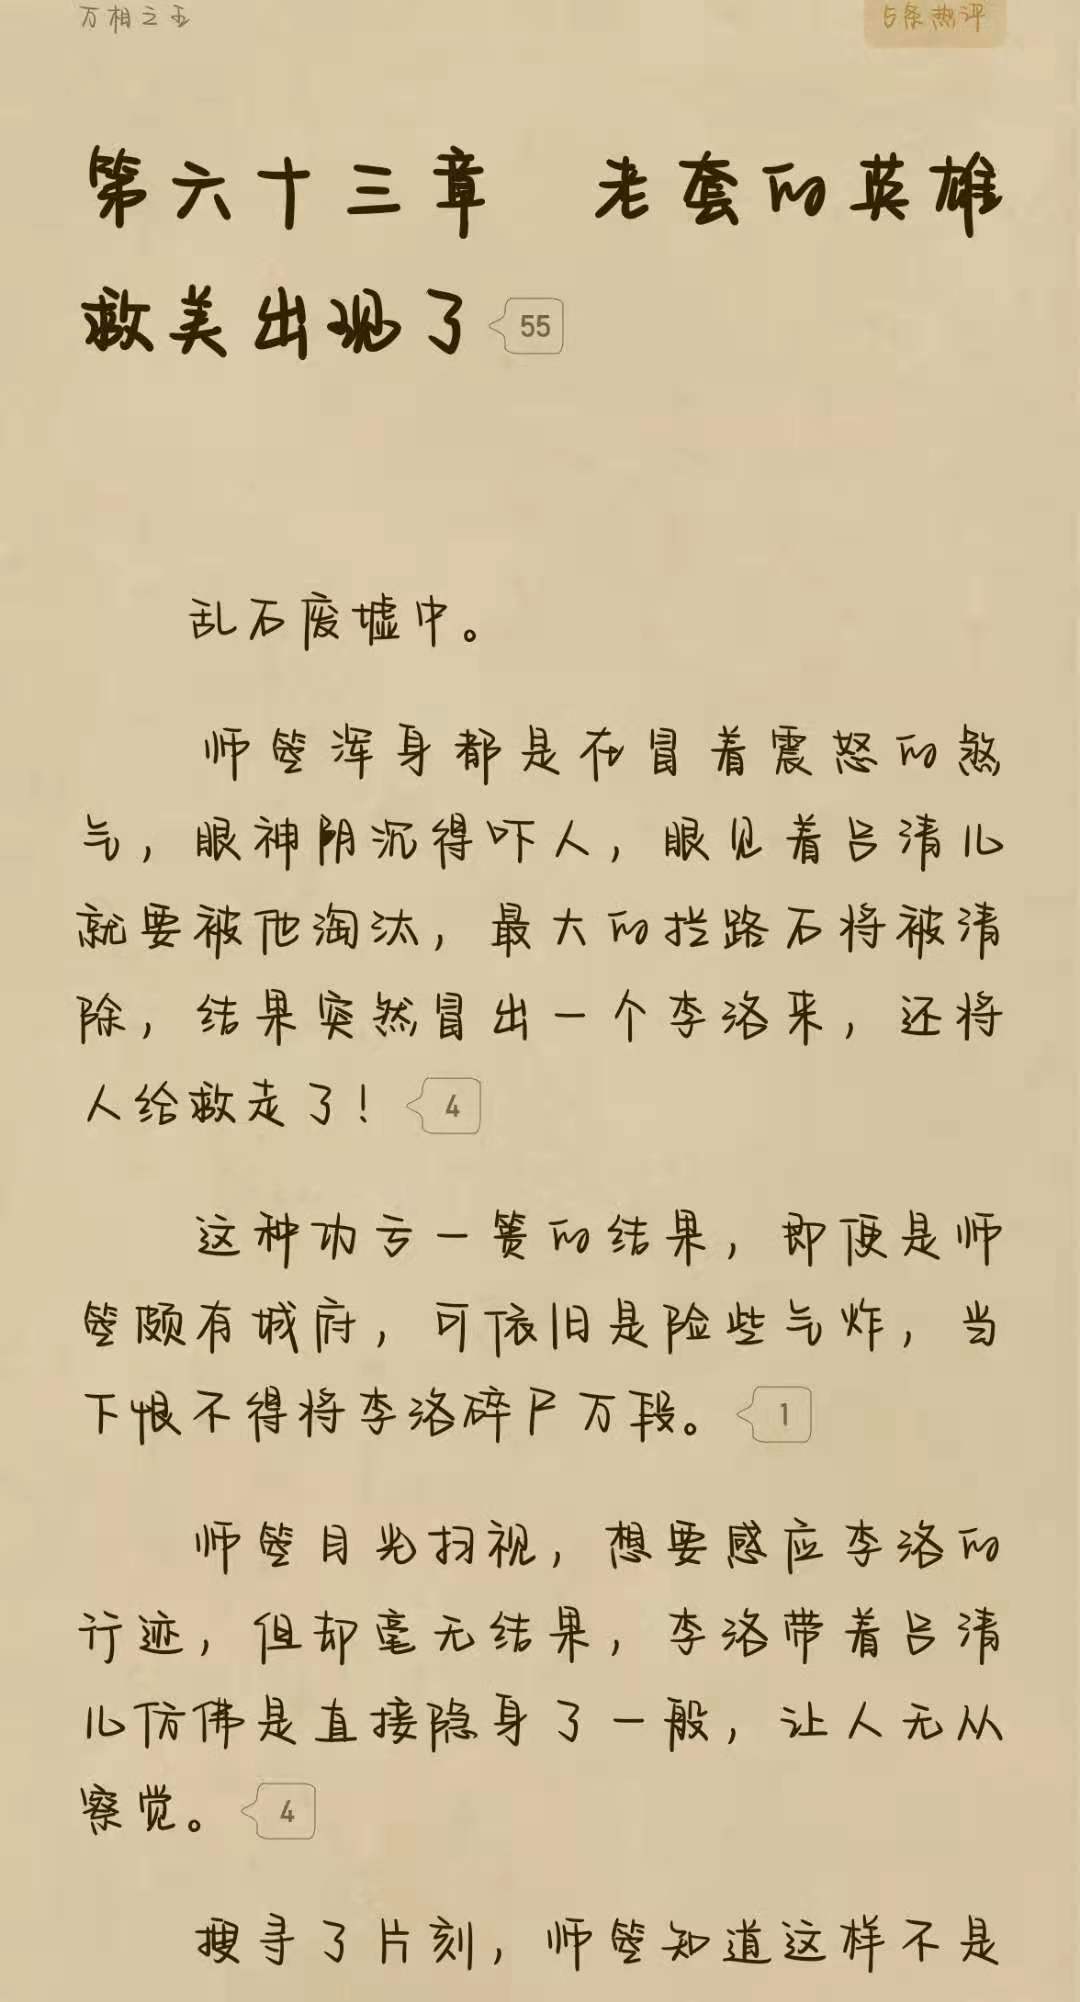 万相之王
5条热评
第六十三章 老套的英雄
救美出现了 55
乱石废墟中。
师箜浑身都是在冒着震怒的煞
气，眼神阴沉得吓人，眼见着吕清儿
就要被他淘汰，最大的拦路石将被清
除，结果突然冒出一个李洛来，还将
人给救走了！ 4
这种功亏一篑的结果，即便是师
箜颇有城府，可依旧是险些气炸，当
下恨不得将李洛碎尸万段。 1
师箜目光扫视，想要感应李洛的
行迹，但却毫无结果，李洛带着吕清
儿仿佛是直接隐身了一般，让人无从
察觉。 4
搜寻了片刻，师箜知道这样不是